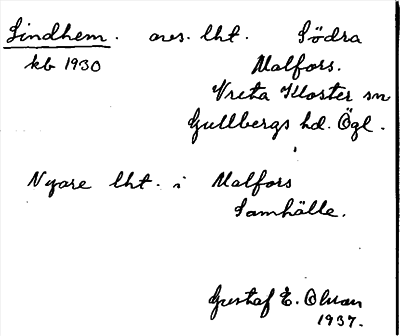 Lindhem. avs. lht. Södra
kb 1930 Malfors.
Vreta Kloster sn
Gullbergs hd. Ögl.
Nyare lht. i Malfors
Samhälle.
Gustaf E. Olman
1937.